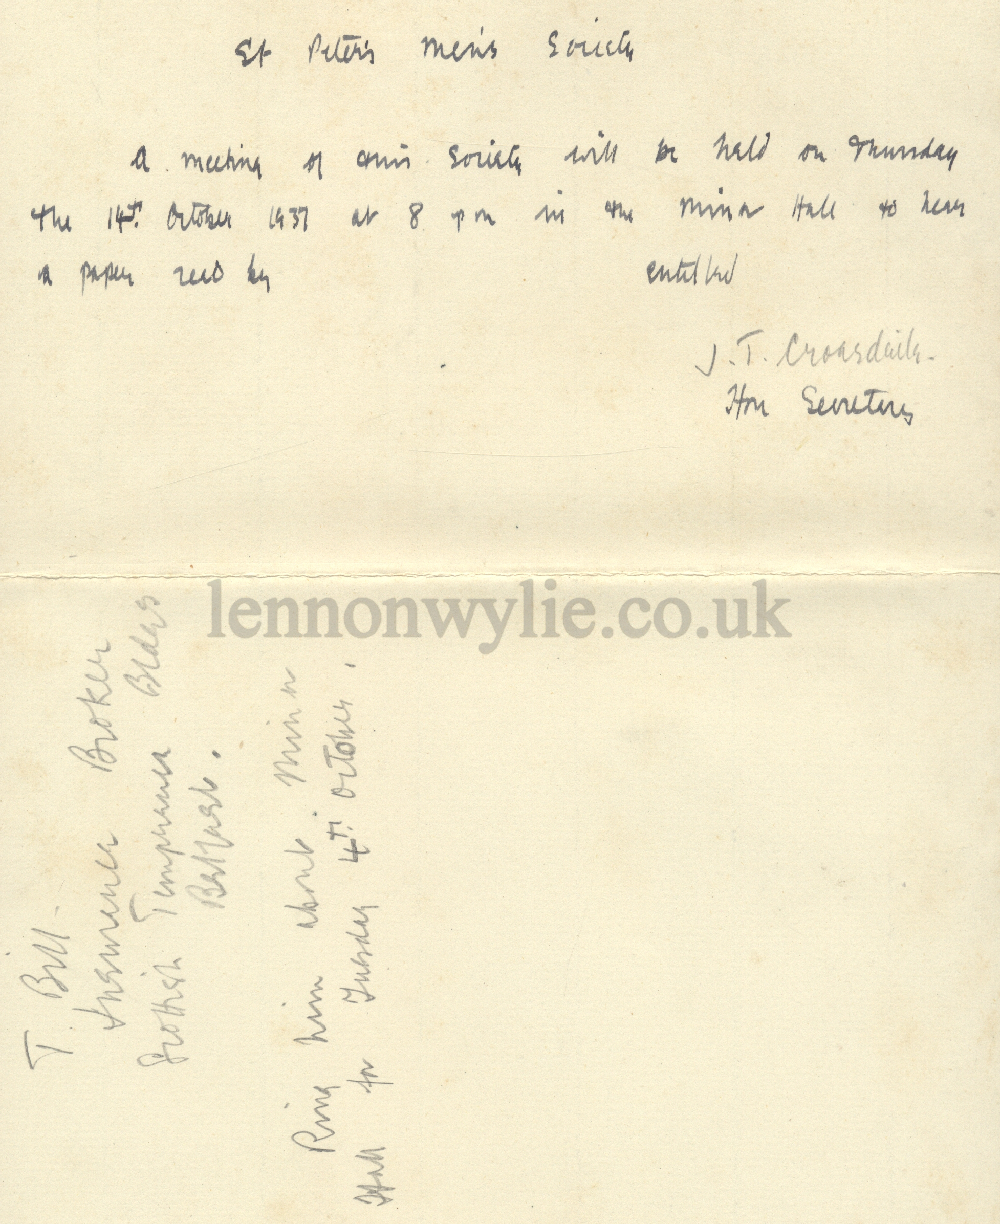 St Peter's Men's Society
A meeting of this Society will be held on Thursday
the 14th. October 1937 at 8 pm in the Minor Hall to hear
a paper read by entitled
J. T. Croasdaile.
Hon Secretary
lennonwylie.co.uk
T. Bell.
Insurance Broker
Scottish Temperance Bldgs
Belfast.
Ring him about Minor
Hall for Tuesday 4th. October.